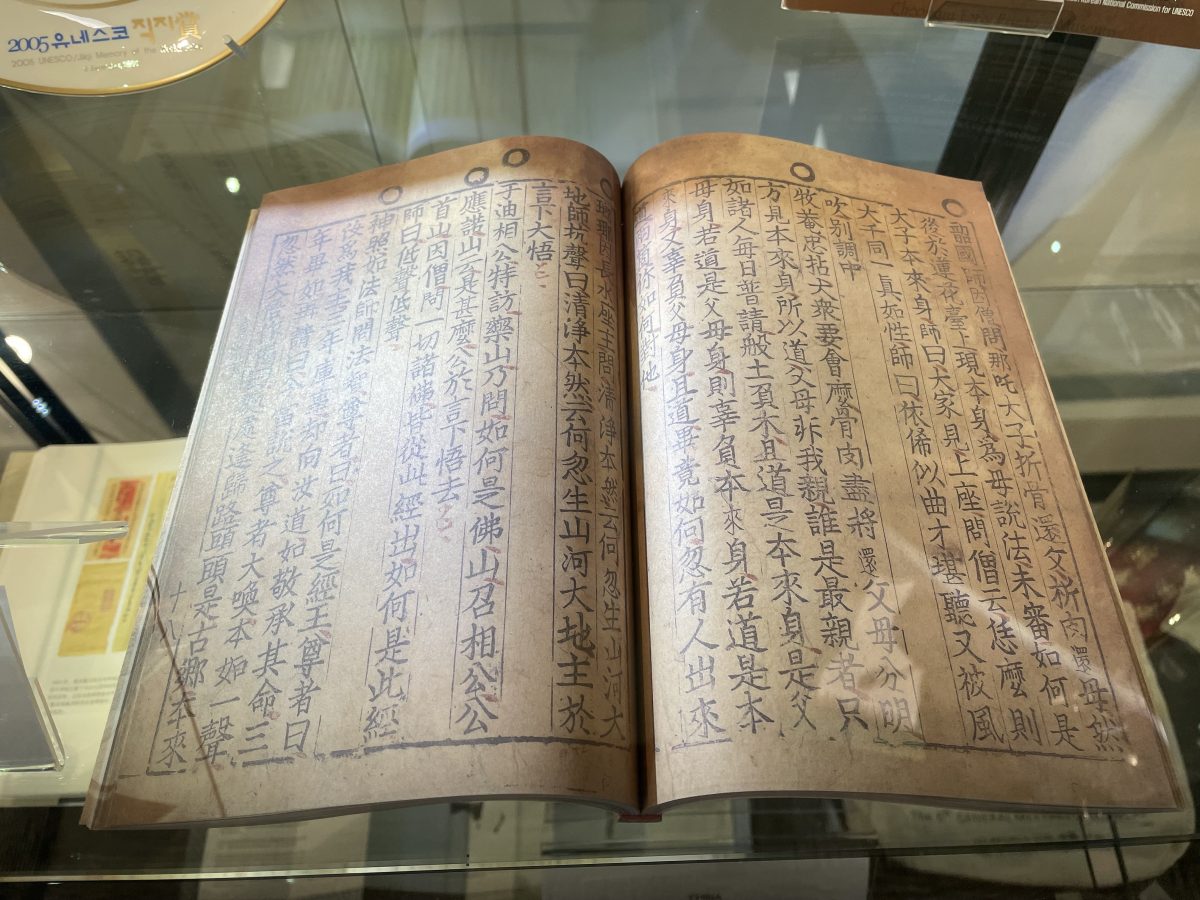 2005 유네스코 직지賞
2005 UNESCO/Jikji Memory of the
Korean National Commission for UNESCO
韶國師因僧問那吒大子折骨還父析肉還母然
後於蓮花臺上現本身爲母說法未審如何是
大子本來身師曰大家見上座問僧云恁麼則
大千同一真如性師曰依俙似曲才堪聽又被風
吹別調中
牧菴忠拈大衆要會麼骨肉盡將還父母分明
方見本來身所以道父母非我親誰是最親者只
如諸人每日普請般土木且道是本來身是父
母身若道是父母身則辜負本來身若道是本
來身又辜負父母身且道畢竟如何忽有人出來
你如何對他
瑯瑘因長水座主問清淨本然云何忽生山河大
地師抗聲曰清淨本然云何忽生山河大地主於
言下大悟
于迪相公特訪藥山乃問如何是佛山召相公公
應諾山云是甚麼公於言下悟去
首山因僧問一切諸佛皆從此經出如何是此經
師曰低聲低聲
神照如法師問法智尊者曰如何是經王尊者曰
汝爲我主三年庫事却向汝道如敬承其命三
年畢如再請曰今當說之尊者大喚本如一聲
忽然大悟處逢歸路頭頭是古鄉本來